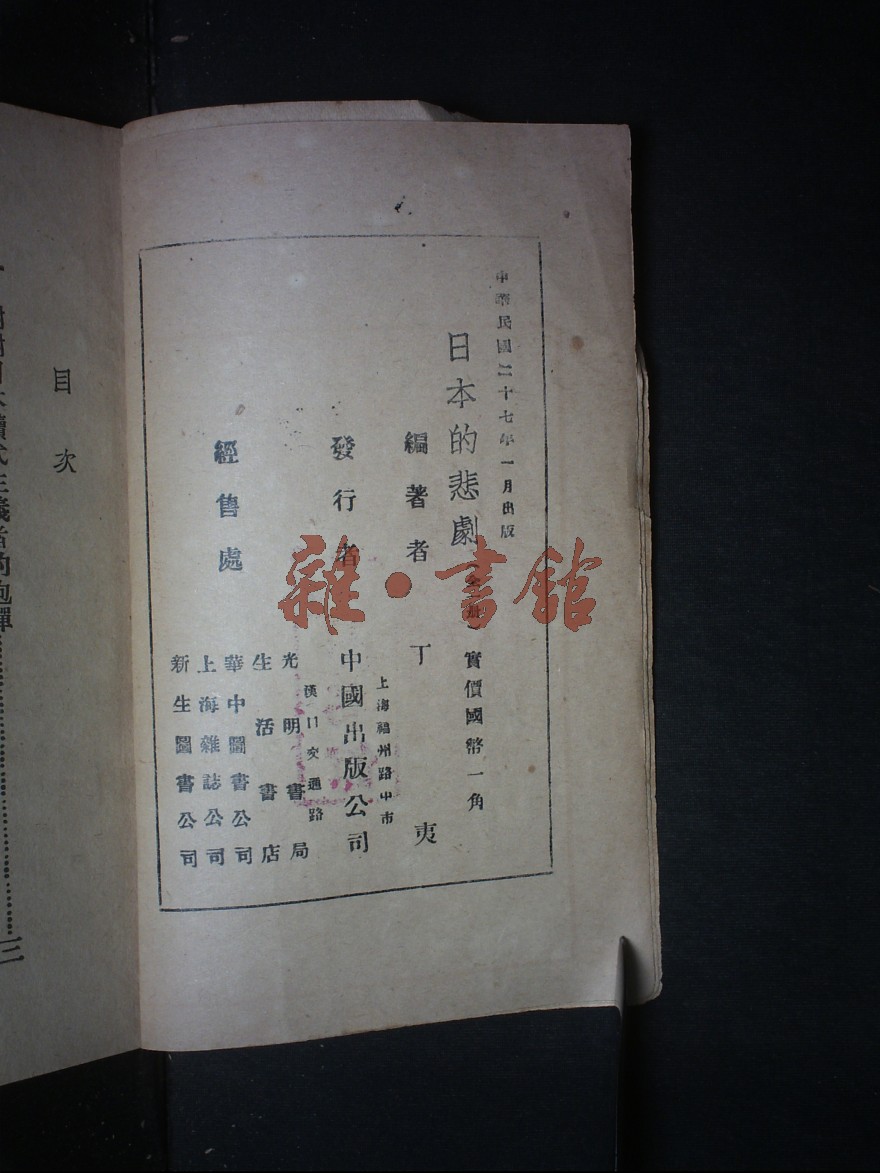 中華民國二十七年一月出版
日本的悲劇
實價國幣一角
編著者 丁夷
上海福州路中市
發行者 中國出版公司
漢口交通路
光明書局
經售處
生活書店
華中圖書公司
上海雜誌公司
新生圖書公司
目次
雜·書館